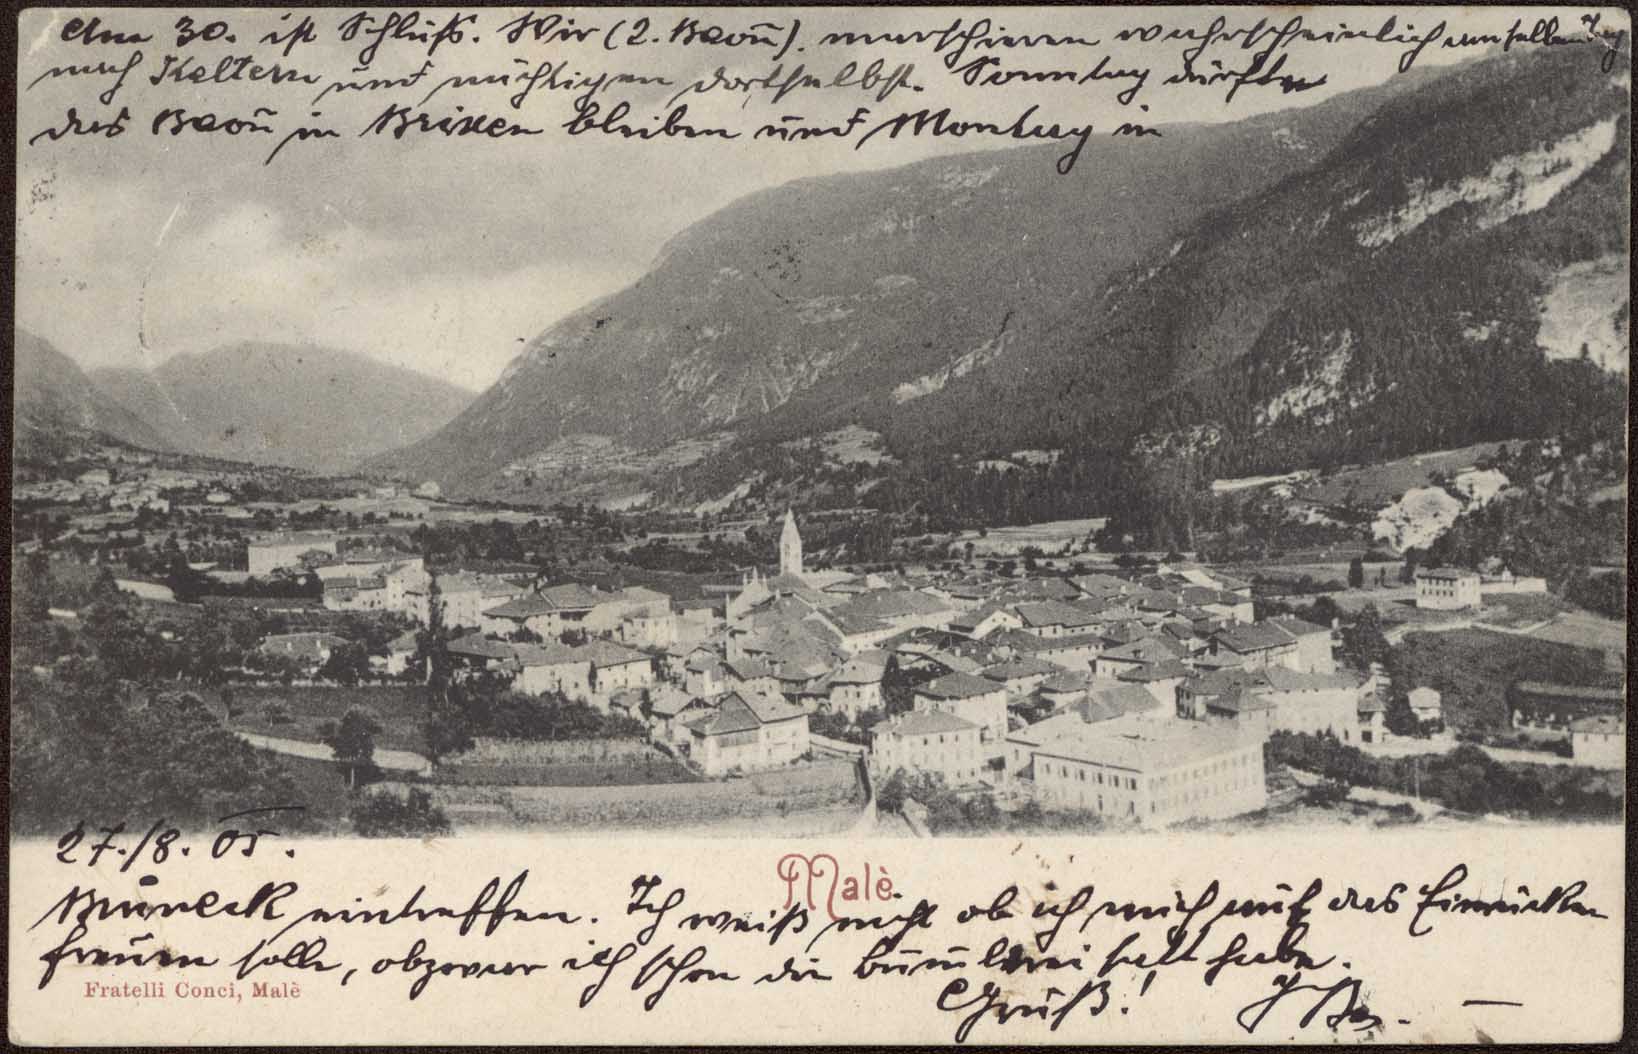 Am 30. ist Schluß. Wir (2. Baon̄). marschieren wahrscheinlich am selben Tag
nach Kaltern und nächtigen dortselbst. Sonntag dürften
das Baon̄ in Brixen bleiben und Montag in
27./8. 05.
Malè.
Bruneck eintreffen. Ich weiß nicht ob ich mich auf das Einrücken
freuen solle, obzwar ich schon die Bummlerei satt habe.
Fratelli Conci, Malè
Gruß!